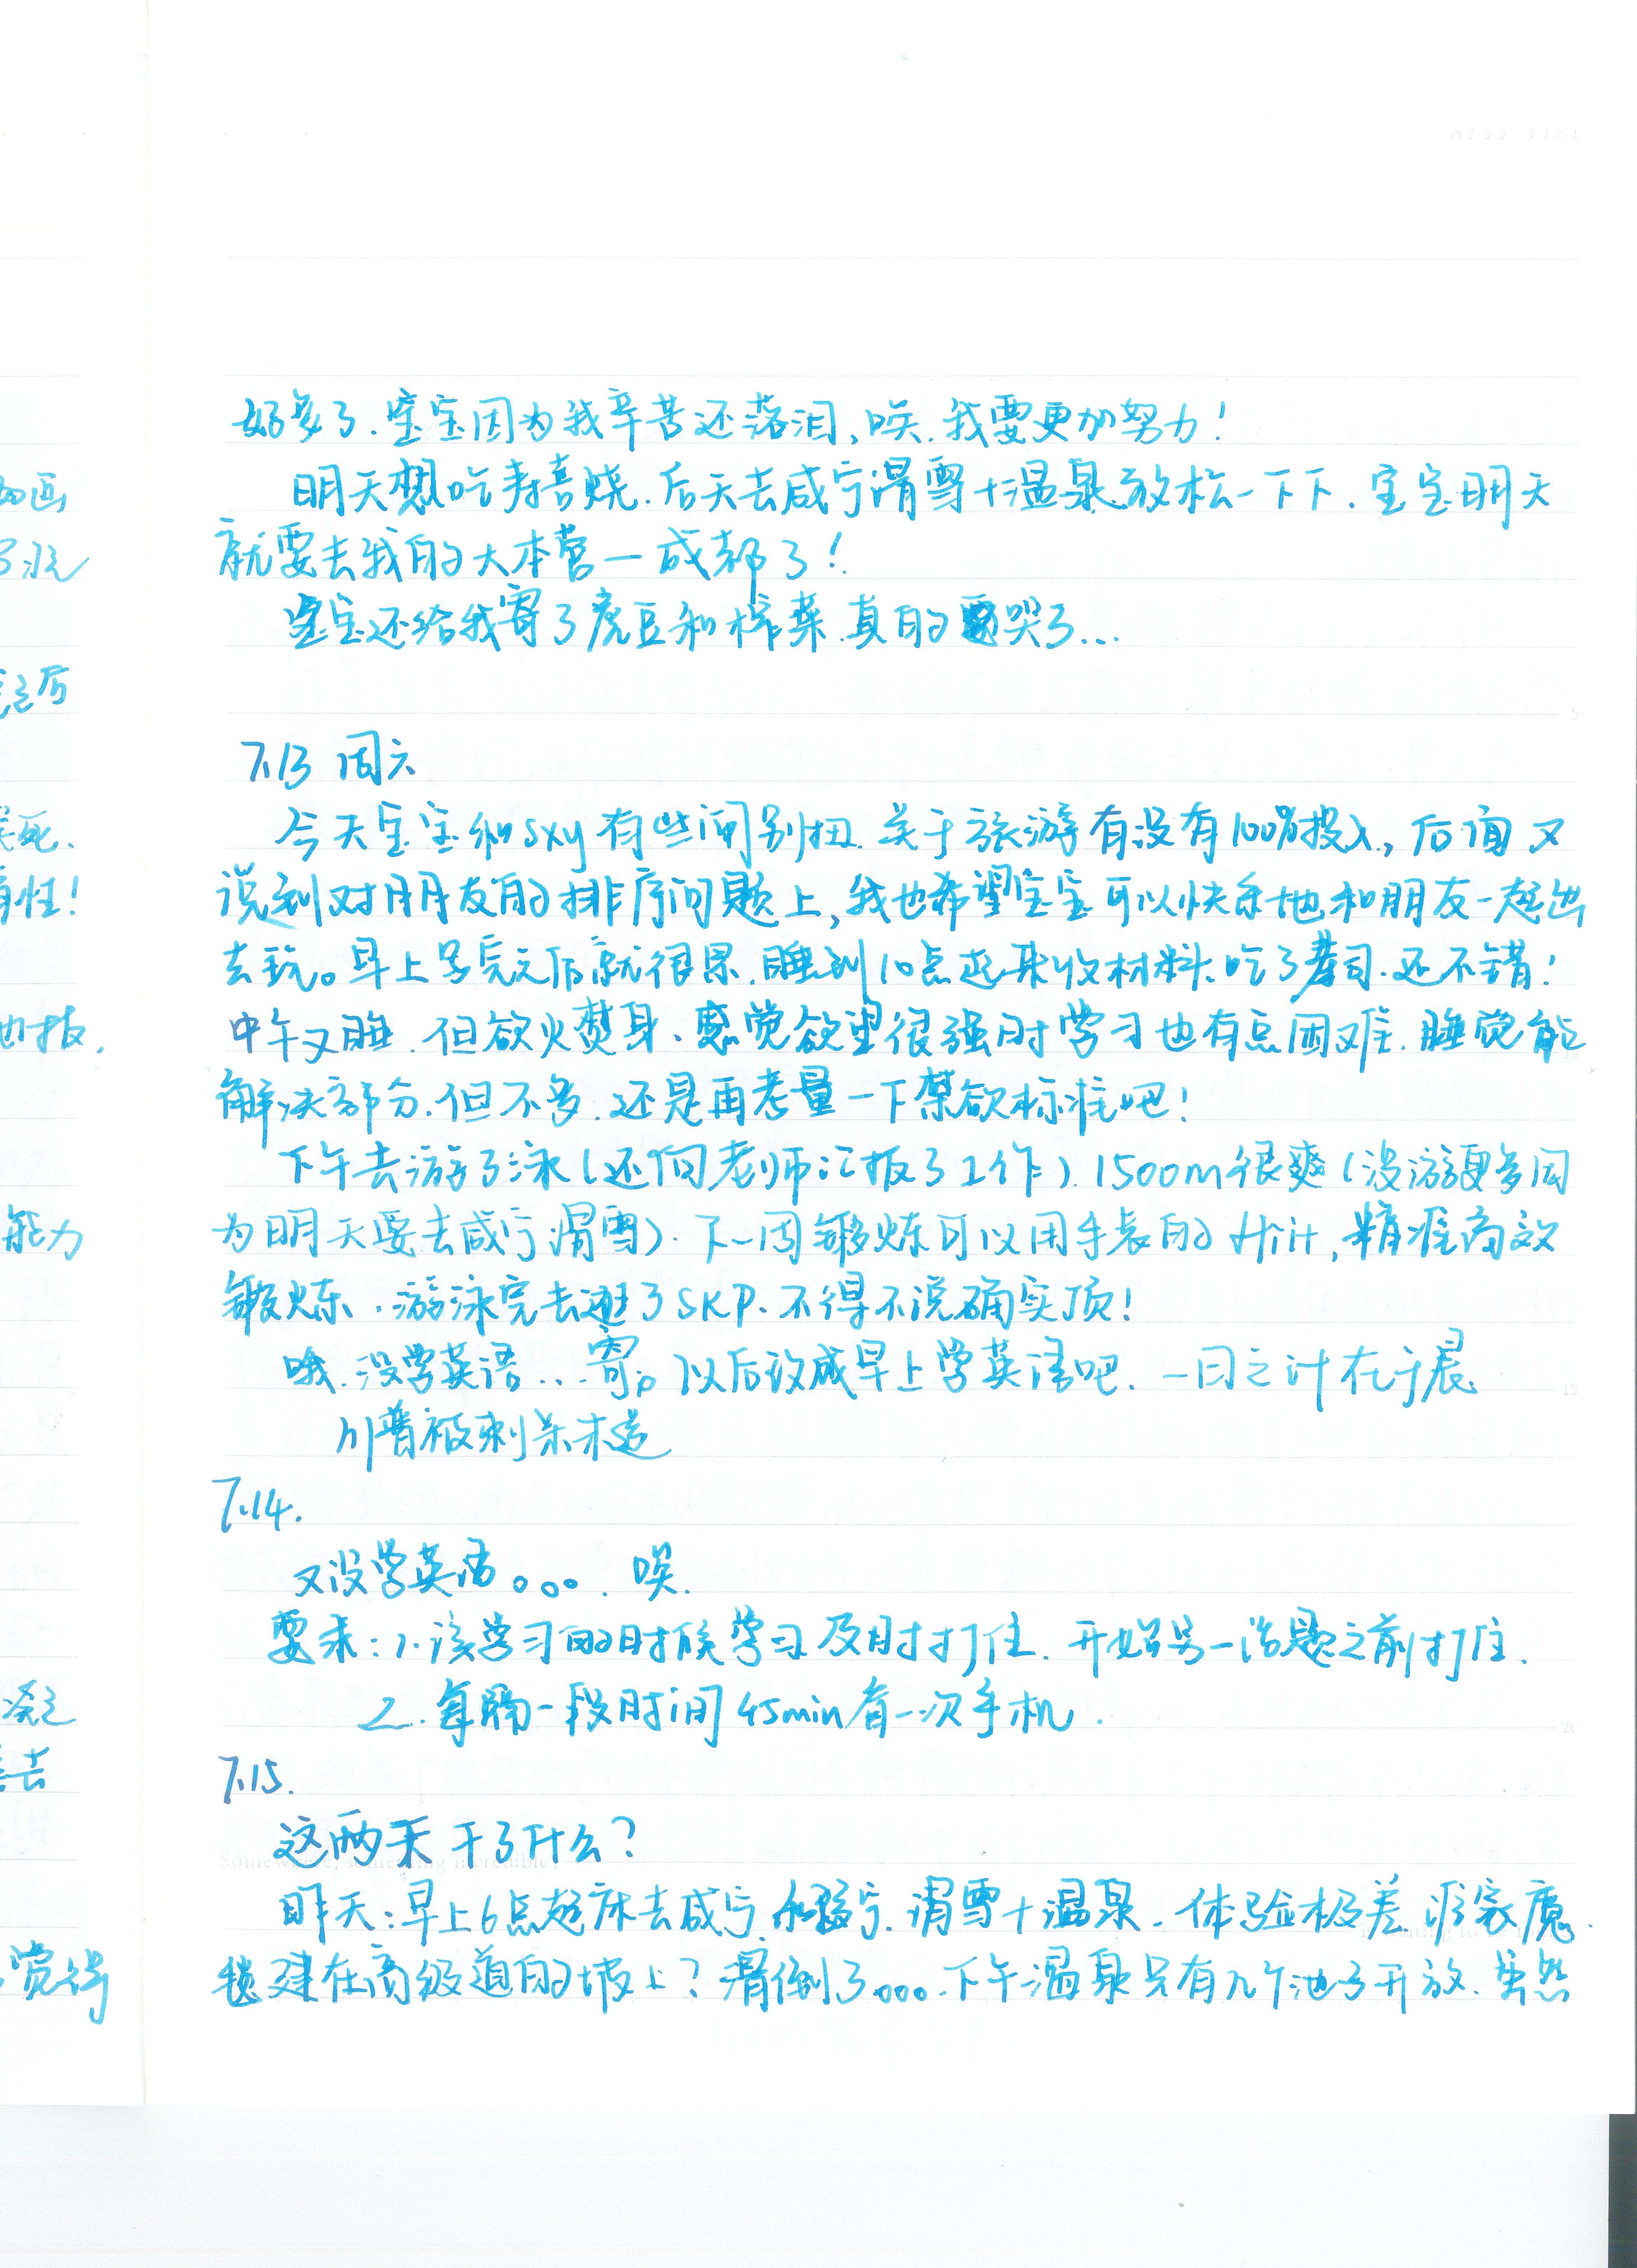 好多了.宝宝因为我辛苦还落泪,唉.我要更加努力!
明天想吃寿喜烧.后天去咸宁滑雪+温泉放松一下下.宝宝明天
就要去我的大本营—成都了!
宝宝还给我寄了虎豆和榨菜.真的要哭了...
7.13 周六
今天宝宝和sxy有些闹别扭.关于旅游有没有100%投入,后面又
说到对朋友的排序问题上,我也希望宝宝可以快乐地和朋友一起出
去玩。早上 完之后就很累.睡到10点起来收材料.吃了寿司.还不错!
中午又睡.但欲火焚身、感觉欲望很强时学习也有点困难.睡觉能
解决部分.但不多.还是再考量一下禁欲标准吧!
下午去游了泳(还向老师汇报了工作).1500m很爽(没游更多因
为明天要去咸宁滑雪).下一周锻炼可以用手表的Hiit,精准高效
锻炼.游泳完去逛了SKP.不得不说确实顶!
哦.没学英语...寄。以后改成早上学英语吧.一日之计在于晨
川普被刺杀未遂
7.14.
又没学英语。。。.唉.
要求:1.该学习的时候学习及时打住.开始另一话题之前打住.
2.每隔一段时间45min看一次手机.
7.15.
这两天干了什么?
昨天:早上6点起床去咸宁 滑雪+温泉.体验极差.谁家魔
毯建在高级道的坡上?滑倒了。。。.下午温泉只有几个池子开放.虽然
动画
之后
死.
性!
也报.
能力
去
觉得